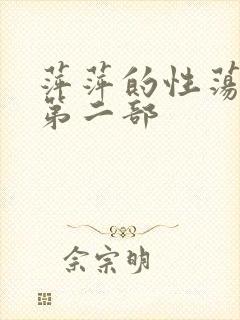 萍萍的性荡
第二部
佘宗明